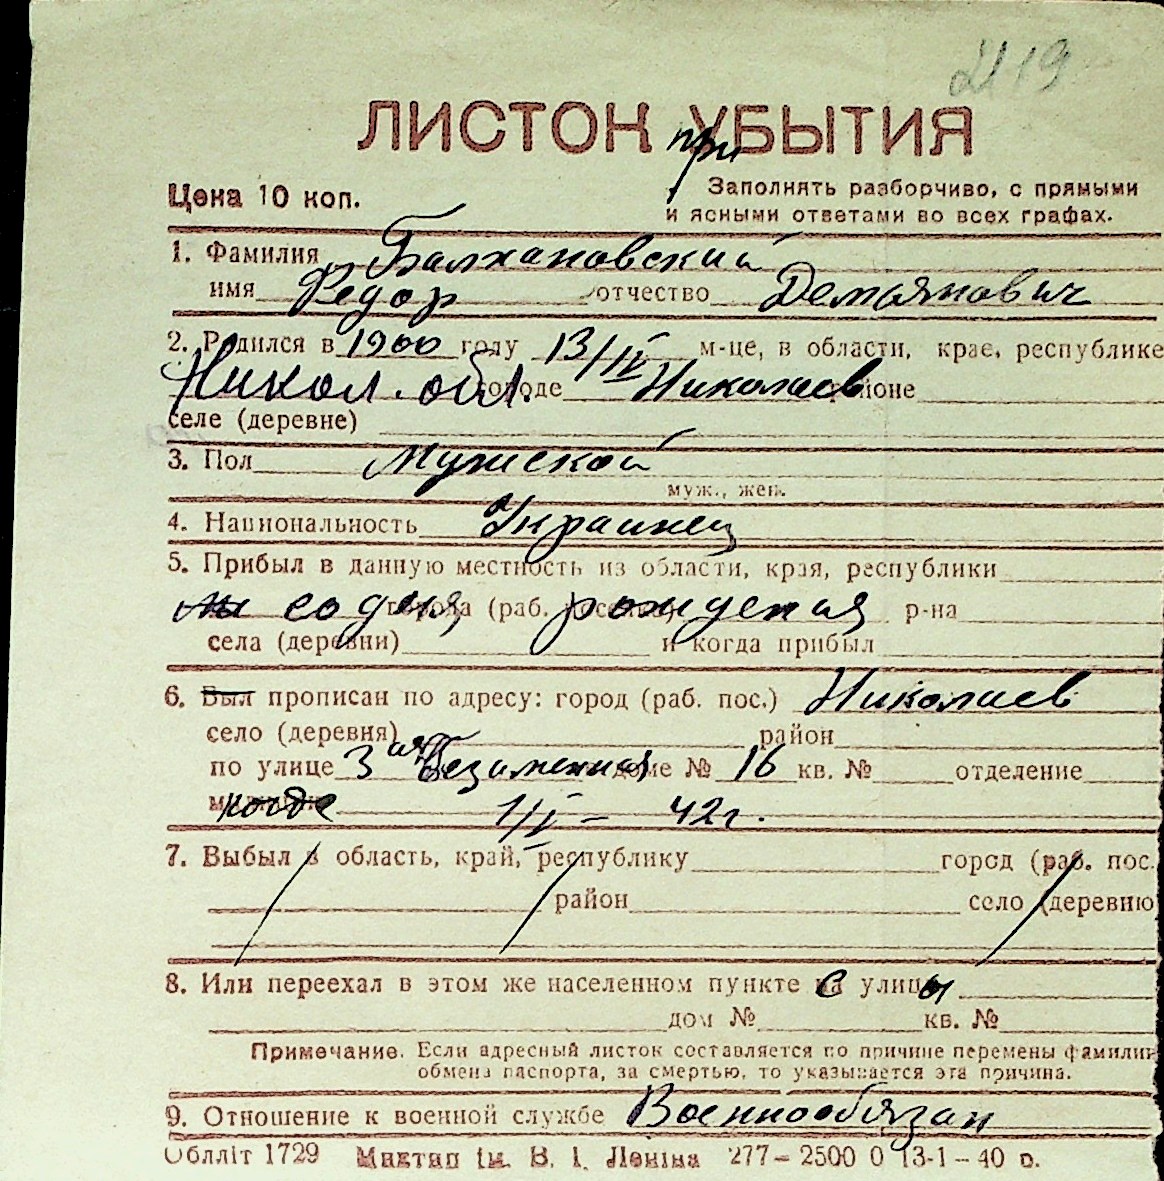 2119
ЛИСТОК УБЫТИЯ
при
Цена 10 коп.
Заполнять разборчиво, с прямыми
и ясными ответами во всех графах.
1. Фамилия Балхановский
имя Федор отчество Демьянович
2. Родился в 1900 году 13/IV м-це, в области, крае, республике
Никол. обл. городе Николаев районе
селе (деревне)
3. Пол Мужской
муж., жен.
4. Национальность Украинец
5. Прибыл в данную местность из области, края, республики
со дня рождения р-на
села (деревни) и когда прибыл
6. Был прописан по адресу: город (раб. пос.) Николаев
село (деревня) район
по улице 3ая Безименная доме № 16 кв. № отделение
когда 1/I – 42 г.
7. Выбыл в область, край, республику город (раб. пос.
район село (деревню
8. Или переехал в этом же населенном пункте с улицы
дом № кв. №
Примечание. Если адресный листок составляется по причине перемены фамилии
обмена паспорта, за смертью, то указывается эта причина.
9. Отношение к военной службе Военнообязан
Облліт 1729 Миктип ім. В. І. Леніна 277–2500 0 13-1–40 р.